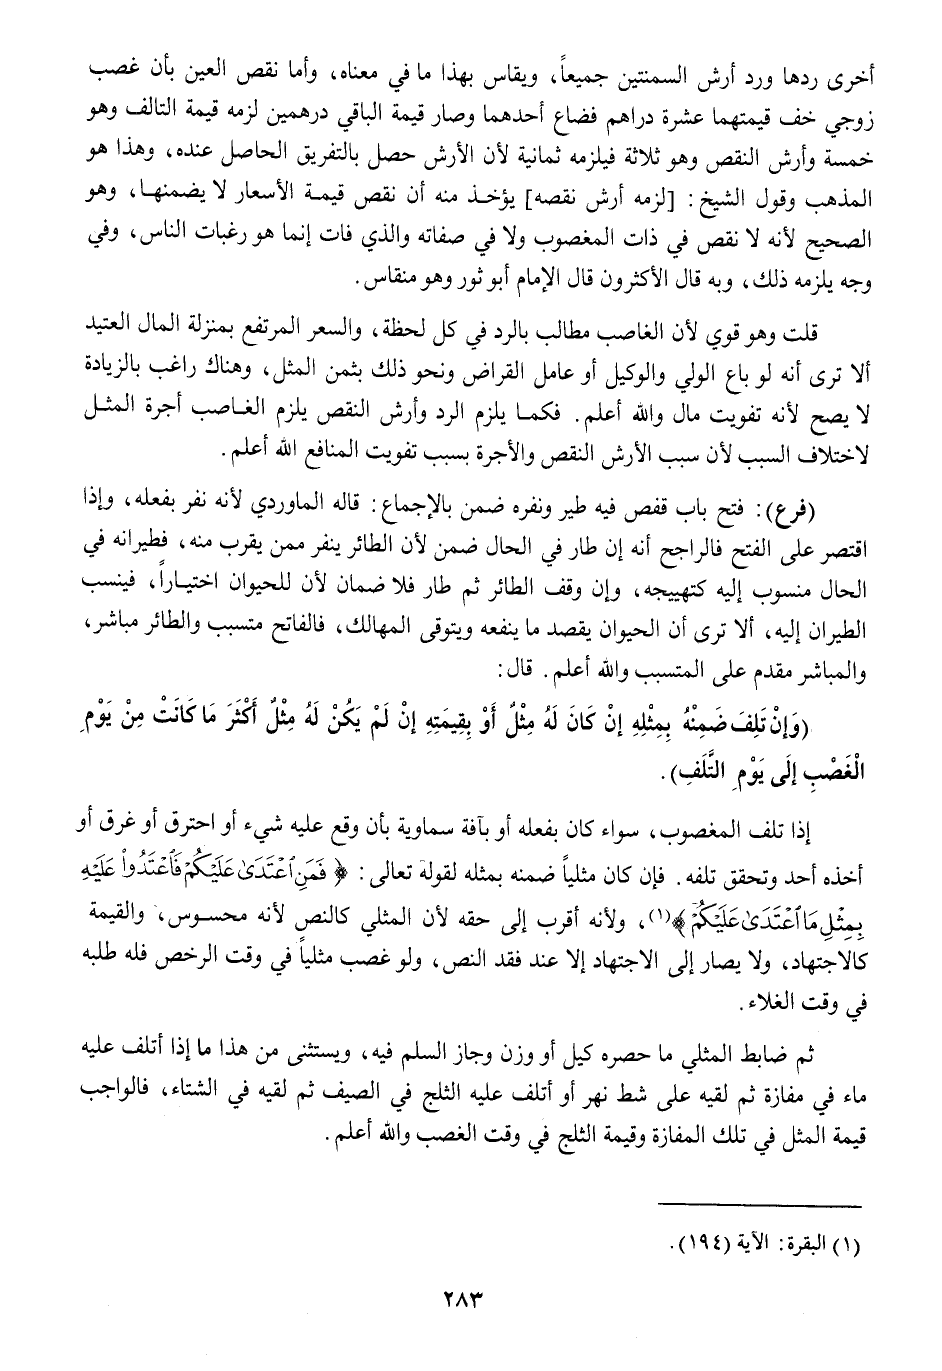 أخرى ردها ورد أرش السمنتين جميعاً، ويقاس بهذا ما في معناه، وأما نقص العين بأن غصب
زوجي خف قيمتهما عشرة دراهم فضاع أحدهما وصار قيمة الباقي درهمين لزمه قيمة التالف وهو
خمسة وأرش النقص وهو ثلاثة فيلزمه ثمانية لأن الأرش حصل بالتفريق الحاصل عنده، وهذا هو
المذهب وقول الشيخ: [لزمه أرش نقصه] يؤخذ منه أن نقص قيمة الأسعار لا يضمنها، وهو
الصحيح لأنه لا نقص في ذات المغصوب ولا في صفاته والذي فات إنما هو رغبات الناس، وفي
وجه يلزمه ذلك، وبه قال الأكثرون قال الإمام أبو ثور وهو منقاس.
قلت وهو قوي لأن الغاصب مطالب بالرد في كل لحظة، والسعر المرتفع بمنزلة المال العتيد
ألا ترى أنه لو باع الولي والوكيل أو عامل القراض ونحو ذلك بثمن المثل، وهناك راغب بالزيادة
لا يصح لأنه تفويت مال والله أعلم. فكما يلزم الرد وأرش النقص يلزم الغاصب أجرة المثل
لاختلاف السبب لأن سبب الأرش النقص والأجرة بسبب تفويت المنافع الله أعلم.
(فرع): فتح باب قفص فيه طير ونفره ضمن بالإجماع: قاله الماوردي لأنه نفر بفعله، وإذا
اقتصر على الفتح فالراجح أنه إن طار في الحال ضمن لأن الطائر ينفر ممن يقرب منه، فطيرانه في
الحال منسوب إليه كتهييجه، وإن وقف الطائر ثم طار فلا ضمان لأن للحيوان اختياراً، فينسب
الطيران إليه، ألا ترى أن الحيوان يقصد ما ينفعه ويتوقى المهالك، فالفاتح متسبب والطائر مباشر،
والمباشر مقدم على المتسبب والله أعلم. قال:
(وَإِنْ تَلِفَ ضَمِنَهُ بِمِثْلِهِ إِنْ كَانَ لَهُ مِثْلٌ أَوْ بِقِيمَتِهِ إِنْ لَمْ يَكُنْ لَهُ مِثْلٌ أَكْثَرَ مَا كَانَتْ مِنْ يَوْمِ
الْغَصْبِ إِلَى يَوْمِ التَّلَفِ).
إذا تلف المغصوب، سواء كان بفعله أو بآفة سماوية بأن وقع عليه شيء أو احترق أو غرق أو
أخذه أحد وتحقق تلفه. فإن كان مثلياً ضمنه بمثله لقولة تعالى: ﴿فَمَنِ ٱعْتَدَىٰ عَلَيْكُمْ فَٱعْتَدُواْ عَلَيْهِ
بِمِثْلِ مَا ٱعْتَدَىٰ عَلَيْكُمْ﴾(١)، ولأنه أقرب إلى حقه لأن المثلي كالنص لأنه محسوس، والقيمة
كالاجتهاد، ولا يصار إلى الاجتهاد إلا عند فقد النص، ولو غصب مثلياً في وقت الرخص فله طلبه
في وقت الغلاء.
ثم ضابط المثلي ما حصره كيل أو وزن وجاز السلم فيه، ويستثنى من هذا ما إذا أتلف عليه
ماء في مفازة ثم لقيه على شط نهر أو أتلف عليه الثلج في الصيف ثم لقيه في الشتاء، فالواجب
قيمة المثل في تلك المفازة وقيمة الثلج في وقت الغصب والله أعلم.
(١) البقرة: الآية (١٩٤).
٢٨٣